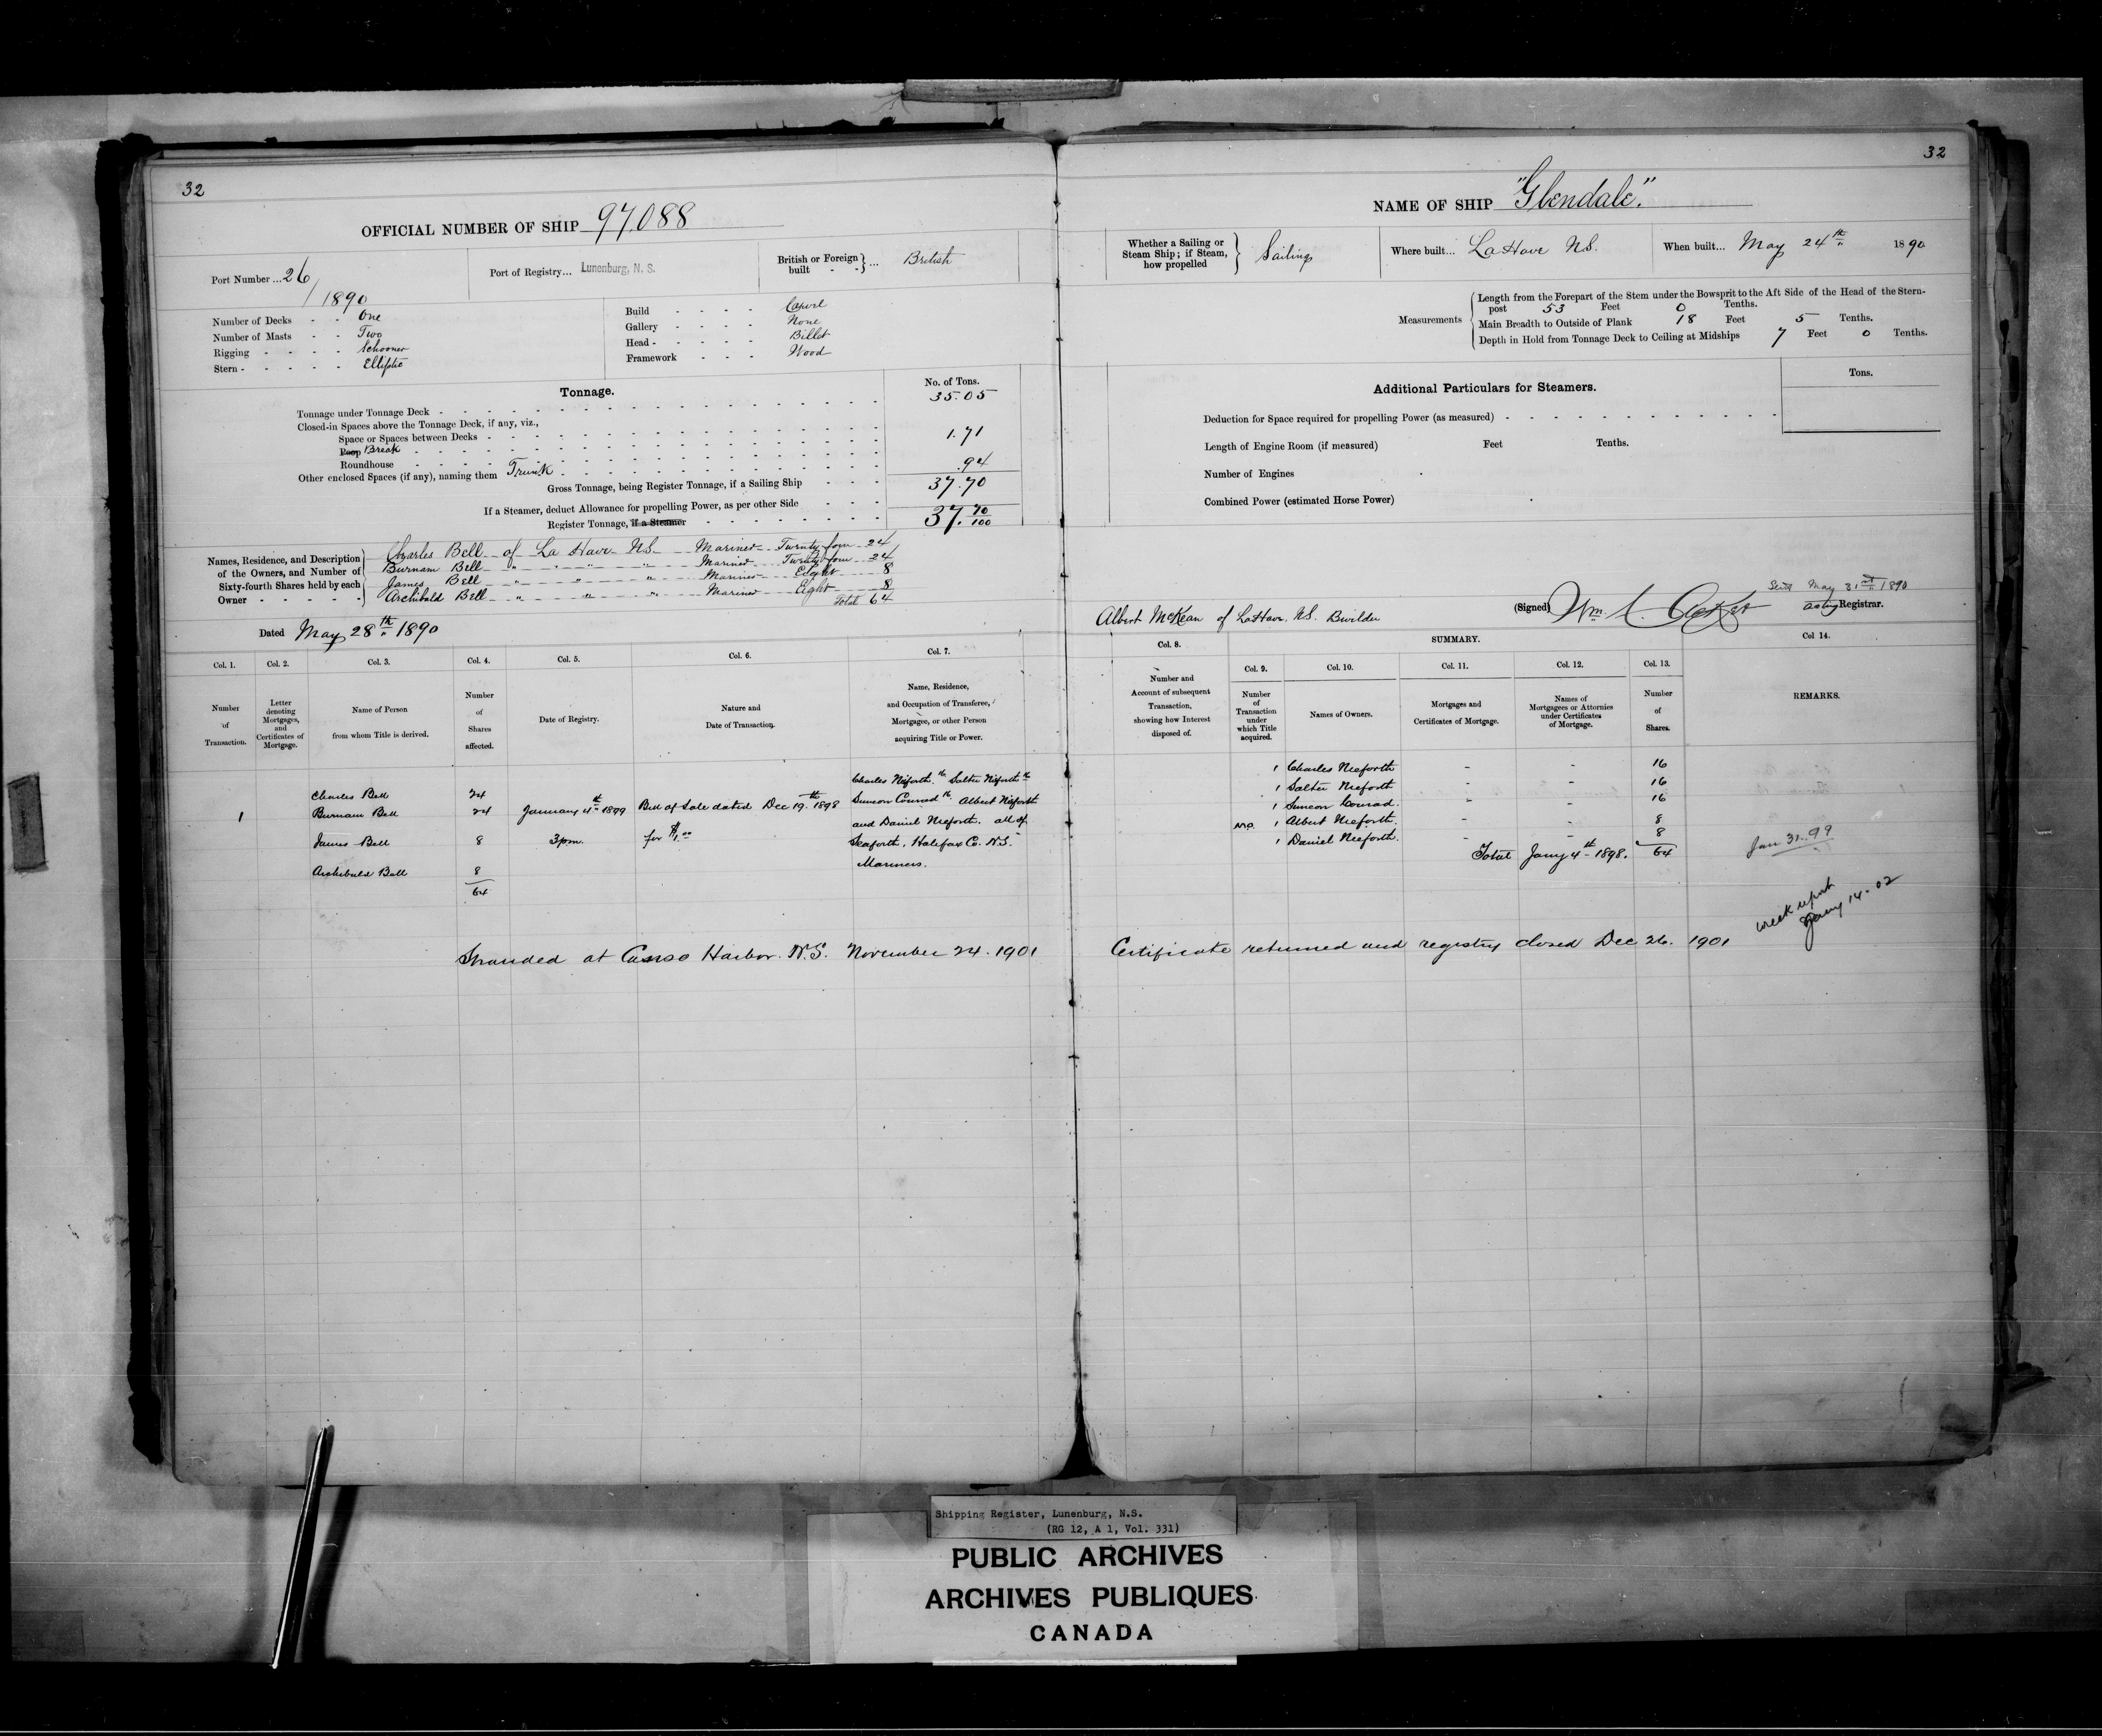 32
OFFICIAL NUMBER OF SHIP 97.088
Port Number ... 26/1890
Port of Registry... Lunenburg, N. S.
British or Foreign built ... British
Number of Decks - - One
Number of Masts - - Two
Rigging - - - - - Schooner
Stern - - - - - - Elliptic
Build - - - - Carvel
Gallery - - - - None
Head - - - - - Billet
Framework - - - Wood
Tonnage.
No. of Tons.
Tonnage under Tonnage Deck - 35.05
Closed-in Spaces above the Tonnage Deck, if any, viz.,
Space or Spaces between Decks -
Poop Break - 1.71
Roundhouse -
Other enclosed Spaces (if any), naming them Trunk - .94
Gross Tonnage, being Register Tonnage, if a Sailing Ship - - - 37.70
If a Steamer, deduct Allowance for propelling Power, as per other Side - - -
Register Tonnage, if a Steamer - 37.70/100
Names, Residence, and Description of the Owners, and Number of Sixty-fourth Shares held by each Owner - - - - -
Charles Bell of La Have NS Mariner Twenty four 24
Burnam Bell " " " " Mariner Twenty four 24
James Bell " " " Mariner Eight 8
Archibald Bell " " " Mariner Eight 8
Total 64
Dated May 28th 1890
Col. 1. Col. 2. Col. 3. Col. 4. Col. 5. Col. 6. Col. 7.
Number of Transaction.
Letter denoting Mortgages, and Certificates of Mortgage.
Name of Person from whom Title is derived.
Number of Shares affected.
Date of Registry.
Nature and Date of Transaction.
Name, Residence, and Occupation of Transferee, Mortgagee, or other Person acquiring Title or Power.
1
Charles Bell 24
Burnam Bell 24
James Bell 8
Archibald Bell 8
64
January 4th 1899
3pm.
Bill of Sale dated Dec 19th 1898
for $1.00
Charles Nieforth 16 Salter Nieforth 16
Simeon Conrad 16 Albert Nieforth
and Daniel Nieforth. all of
Seaforth, Halifax Co. N.S.
Mariners.
Stranded at Canso Harbor. N.S. November 24. 1901
32
NAME OF SHIP "Glendale."
Whether a Sailing or Steam Ship; if Steam, how propelled } Sailing
Where built... LaHave NS.
When built... May 24th 1890
Measurements
Length from the Forepart of the Stem under the Bowsprit to the Aft Side of the Head of the Stern-
post 53 Feet 0 Tenths.
Main Breadth to Outside of Plank 18 Feet 5 Tenths.
Depth in Hold from Tonnage Deck to Ceiling at Midships 7 Feet 0 Tenths.
Additional Particulars for Steamers.
Tons.
Deduction for Space required for propelling Power (as measured) -
Length of Engine Room (if measured) Feet Tenths.
Number of Engines
Combined Power (estimated Horse Power)
Sent May 31st 1890
Albert McKean of LaHave, NS. Bwilder
(Signed) Wm.
acting Registrar.
SUMMARY.
Col. 8. Col. 9. Col. 10. Col. 11. Col. 12. Col. 13. Col 14.
Number and Account of subsequent Transaction, showing how Interest disposed of.
Number of Transaction under which Title acquired.
Names of Owners.
Mortgages and Certificates of Mortgage.
Names of Mortgagees or Attornies under Certificates of Mortgage.
Number of Shares.
REMARKS.
1 Charles Nieforth - - 16
1 Salter Nieforth - - 16
1 Simeon Conrad. - - 16
M.O. 1 Albert Nieforth. - - 8
1 Daniel Nieforth. - - 8
Total Jany 4th 1898. 64
Jan 31-99
wreck report
Jany 14-02
Certificate returned and registry closed Dec 26. 1901
Shipping Register, Lunenburg, N.S.
(RG 12, A 1, Vol. 331)
PUBLIC ARCHIVES
ARCHIVES PUBLIQUES
CANADA